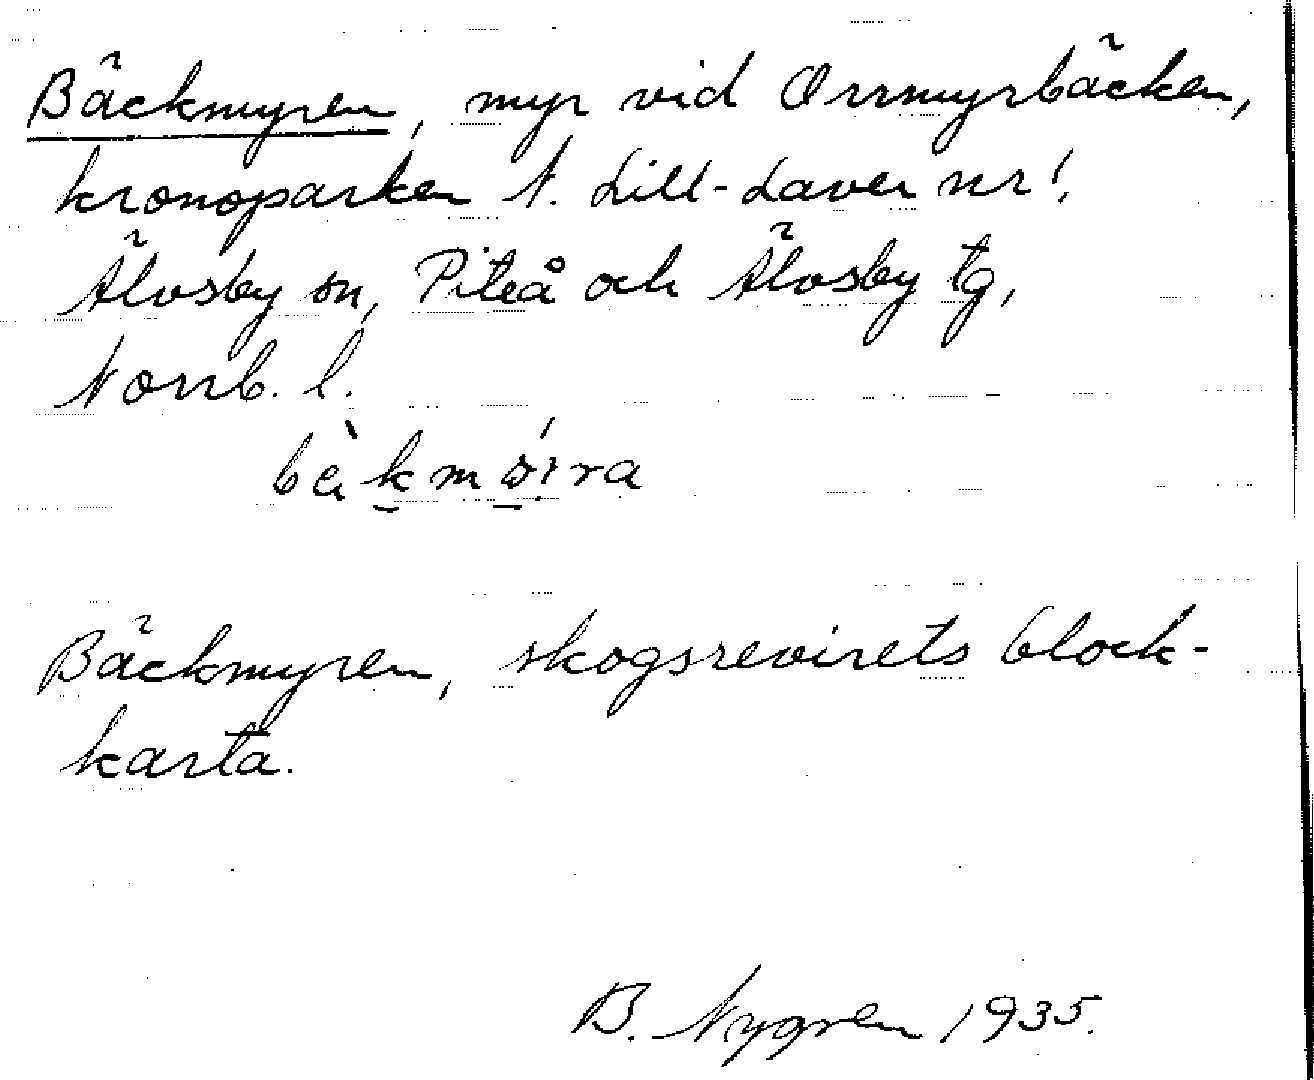 Bäckmyren, myr vid Orrmyrbäcken,
kronoparken N. Lill-Laver nr 1,
Älvsby sn, Piteå och Älvsby tg,
Norrb. l.
Bäckmyren, skogsrevirets block-
karta.
B. Nygren 1935.